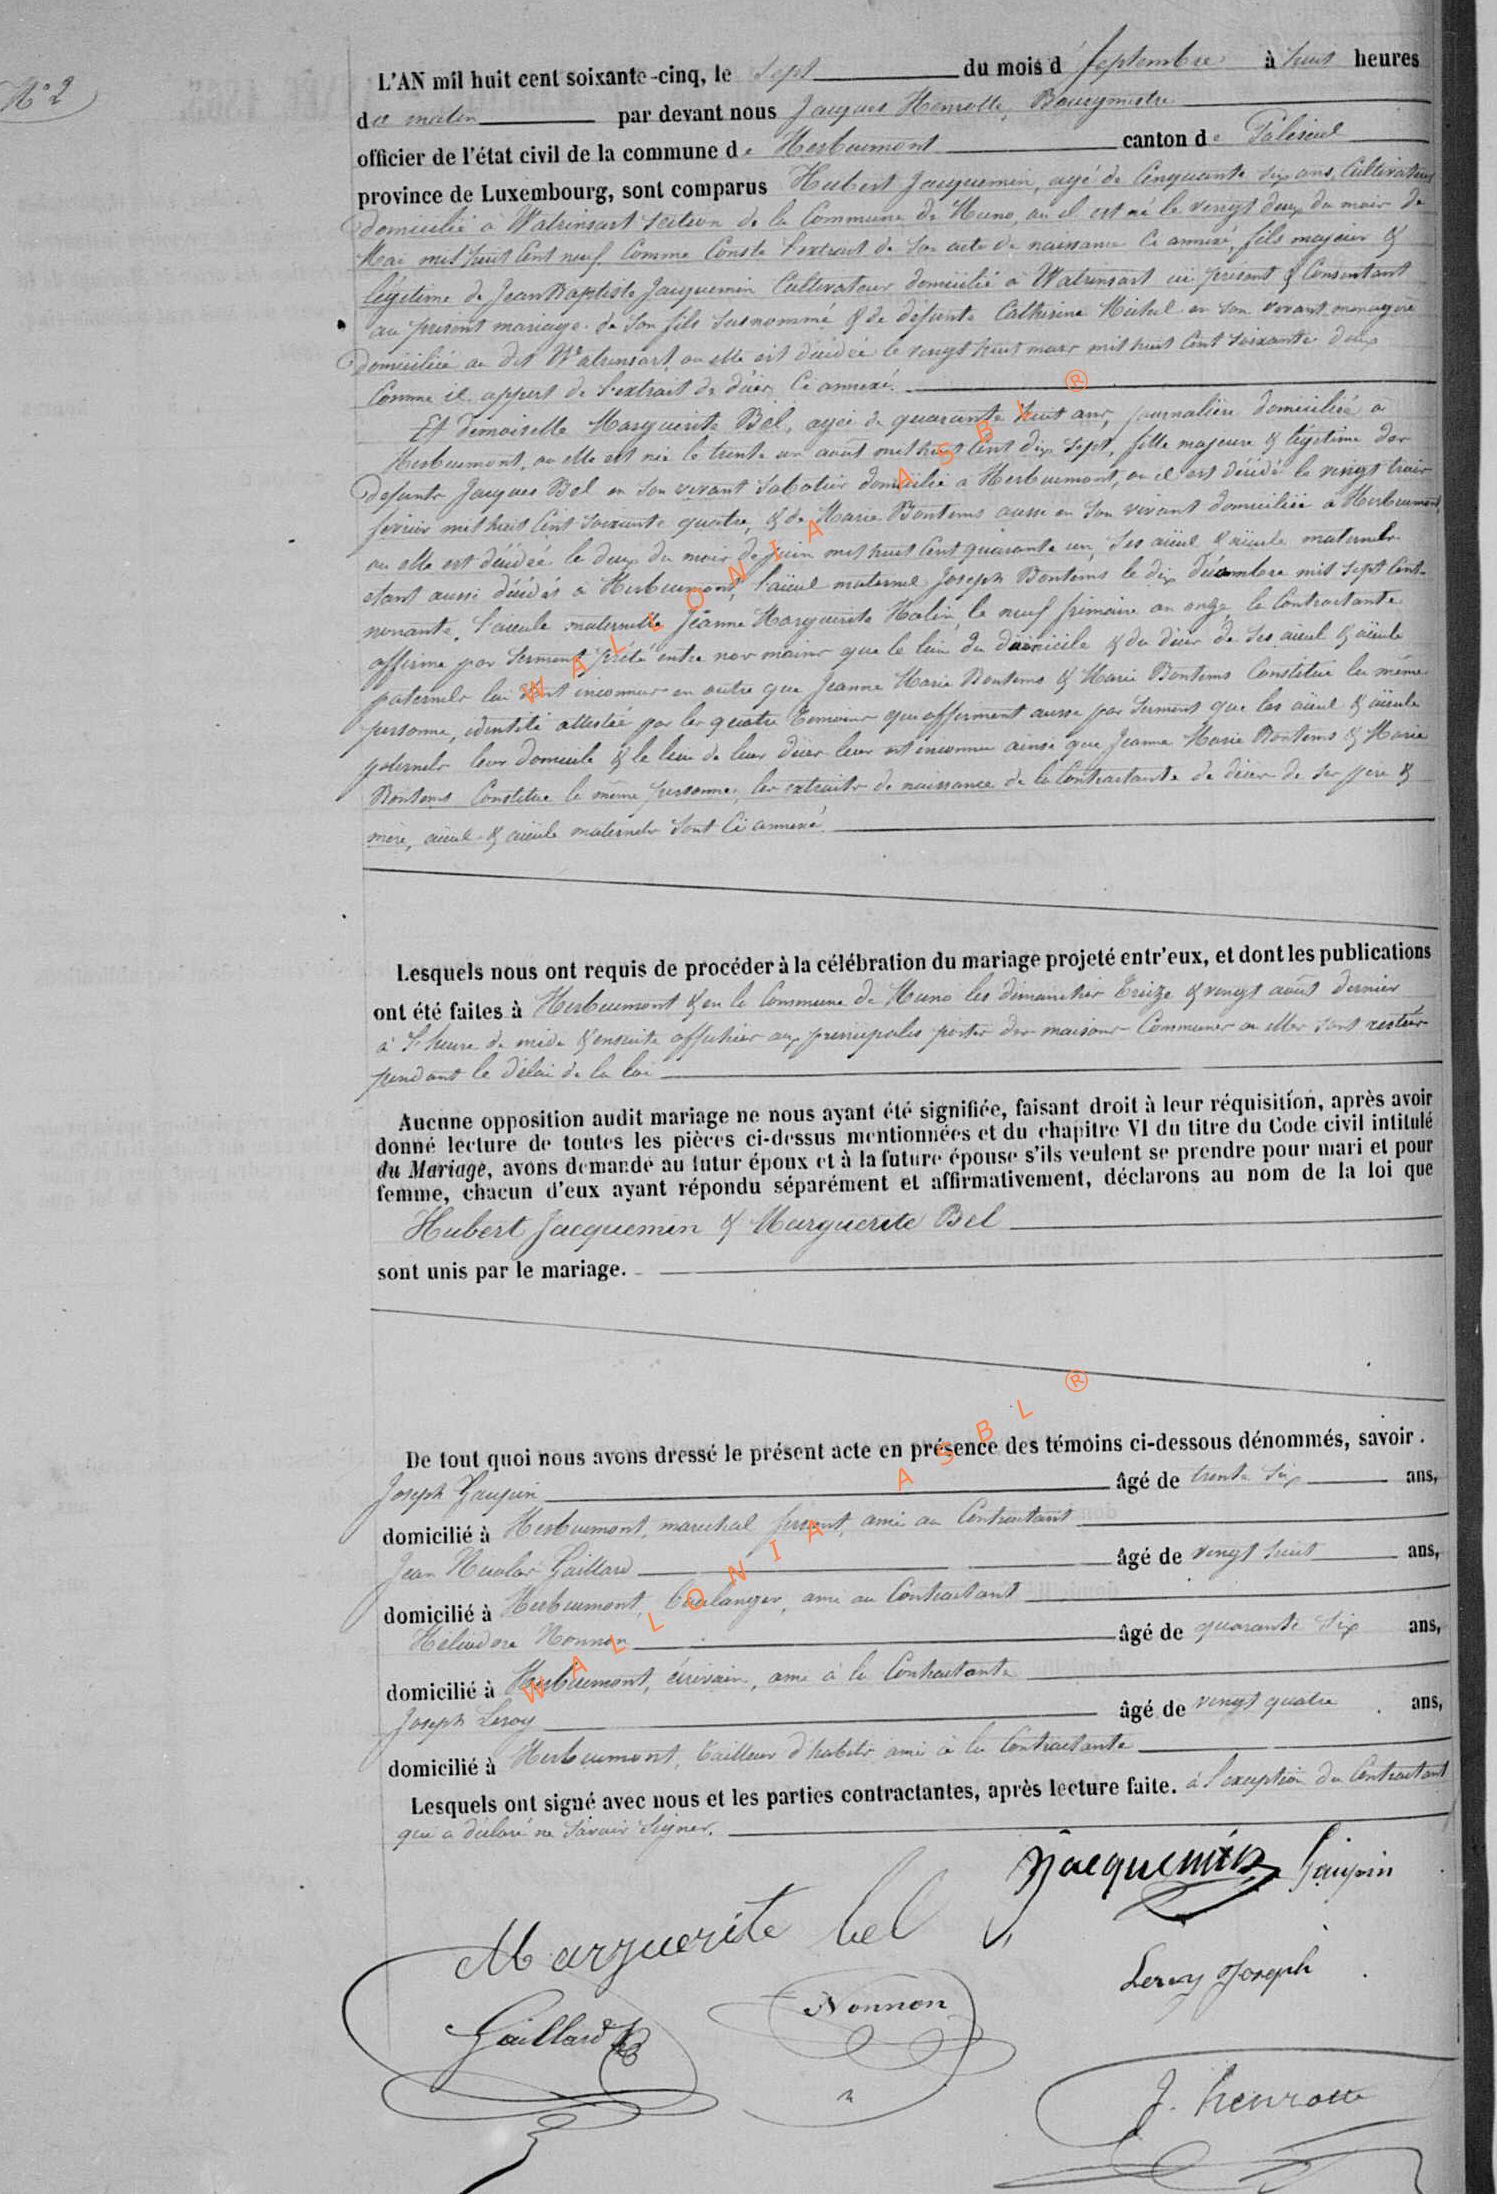 N° 2
L'AN mil huit cent soixante-cinq, le sept du mois d septembre à huit heures
du matin par devant nous Jacques Henrotte, Bourgmestre
officier de l'état civil de la commune de Herbeumont canton de Paliseul
province de Luxembourg, sont comparus Hubert Jacquemin, agé de Cinquante six ans, Cultivateur
domicilié à Watrinsart section de la Commune de Muno, ou il est né le vingt deux du mois de
Mai mil huit Cent neuf Comme Conste l'extrait de son acte de naissance Ci annexé, fils majeur &
légitime de Jean Baptiste Jacquemin Cultivateur domicilié à Watrinsart ici présent & Consentant
au présent mariage de son fils susnommé & de défunte Catherine Michel en son vivant menagère
domiciliée au dit Watrinsart ou elle est décédée le vingt huit mars mil huit Cent soixante deux
Comme il appert de l'extrait de décès Ci annexé.
Et demoiselle Marguerite Bel, agée de quarante huit ans, journalière domiciliée à
Herbeumont, ou elle est née le trente un août mil huit Cent dix sept, fille majeure & légitime des
defunts Jacques Bel en son vivant Sabotier domicilié à Herbeumont, ou il est décédé le vingt trois
fevrier mil huit Cent soixante quatre, & de Marie Bontems aussi en son vivant domiciliée à Herbeumont
ou elle est décédée le deux du mois de juin mil huit Cent quarante un, Ses aïeul & aïeule maternels
etant aussi décédés à Herbeumont, l'aïeul maternel Joseph Bontems le dix décembre mil sept Cent
nonante, l'aïeule maternelle Jeanne Marguerite Halin, le neuf frimaire an onze, la Contractante
affirme par Serment prêté entre nos mains que le lieu du domicile & du décès de ses aïeul & aïeule
paternels lui sont inconnus en outre que Jeanne Marie Bontems & Marie Bontems Constitue la même
personne, identité attestée par les quatre temoins qui afferment aussi par Serment que les aïeul & aïeule
paternels leur domicile & le lieu de leur décès leur est inconnu ainsi que Jeanne Marie Bontems & Marie
Bontems Constitue la même personne, les extraits de naissance de la Contractante de décès de ses pere &
mère, aïeul & aïeule maternels sont Ci annexé.
Lesquels nous ont requis de procéder à la célébration du mariage projeté entr'eux, et dont les publications
ont été faites à Herbeumont & en la Commune de Muno les dimanches treize & vingt août dernier
à l'heure de midi & ensuite affichées aux principales portes des maisons Communes ou elles sont restées
pendant le délai de la loi
Aucune opposition audit mariage ne nous ayant été signifiée, faisant droit à leur réquisition, après avoir
donné lecture de toutes les pièces ci-dessus mentionnées et du chapitre VI du titre du Code civil intitulé
du Mariage, avons demandé au futur époux et à la future épouse s'ils veulent se prendre pour mari et pour
femme, chacun d'eux ayant répondu séparément et affirmativement, déclarons au nom de la loi que
Hubert Jacquemin & Marguerite Bel
sont unis par le mariage.
De tout quoi nous avons dressé le présent acte en présence des témoins ci-dessous dénommés, savoir.
Joseph Gaupin âgé de trente six ans,
domicilié à Herbeumont, marechal ferrant, ami au Contractant
Jean Nicolas Gaillard âgé de vingt huit ans,
domicilié à Herbeumont, boulanger, ami au Contractant
Héliodore Nonnon âgé de quarante six ans,
domicilié à Herbeumont, écrivain, ami à la Contractante
Joseph Leroy âgé de vingt quatre ans,
domicilié à Herbeumont, tailleur d'habits ami à la Contractante
Lesquels ont signé avec nous et les parties contractantes, après lecture faite. à l'exception du Contractant
qui a déclaré ne savoir signer.
Jacquemin Gaupin
Marguerite bel
Leroy Joseph
Gaillard Nonnon
J. henrotte
WALLONIA ASBL ®
WALLONIA ASBL ®